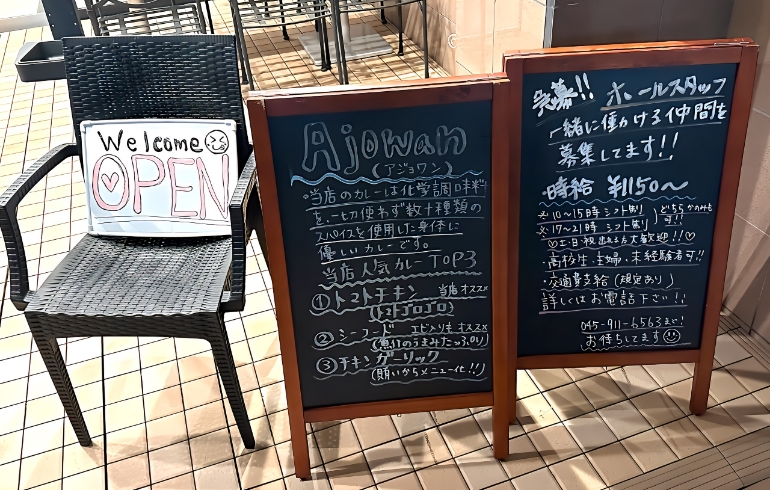 Welcome
OPEN
Ajowan
(アジョワン)
・当店のカレーは化学調味料
を一切使わず数十種類の
スパイスを使用した身体に
優しいカレーです。
当店人気カレーTOP3
①トマトチキン 当店オススメ
(トマトゴロゴロ)
②シーフード エビ、イカ オススメ
(魚介のうまみたっぷり)
③チキンガーリック
(賄いからメニュー化!!)
急募!! ホールスタッフ
一緒に働ける仲間を
募集してます!!
・時給 ¥1150〜
※10〜15時 シフト制
※17〜21時 シフト制
どちらかのみも
可!!
♡土・日・祝出れる方大歓迎!!♡
・高校生・主婦・未経験者可!!
・交通費支給(規定あり)
詳しくはお電話下さい!!
045-911-6563まで!
お待ちしてます